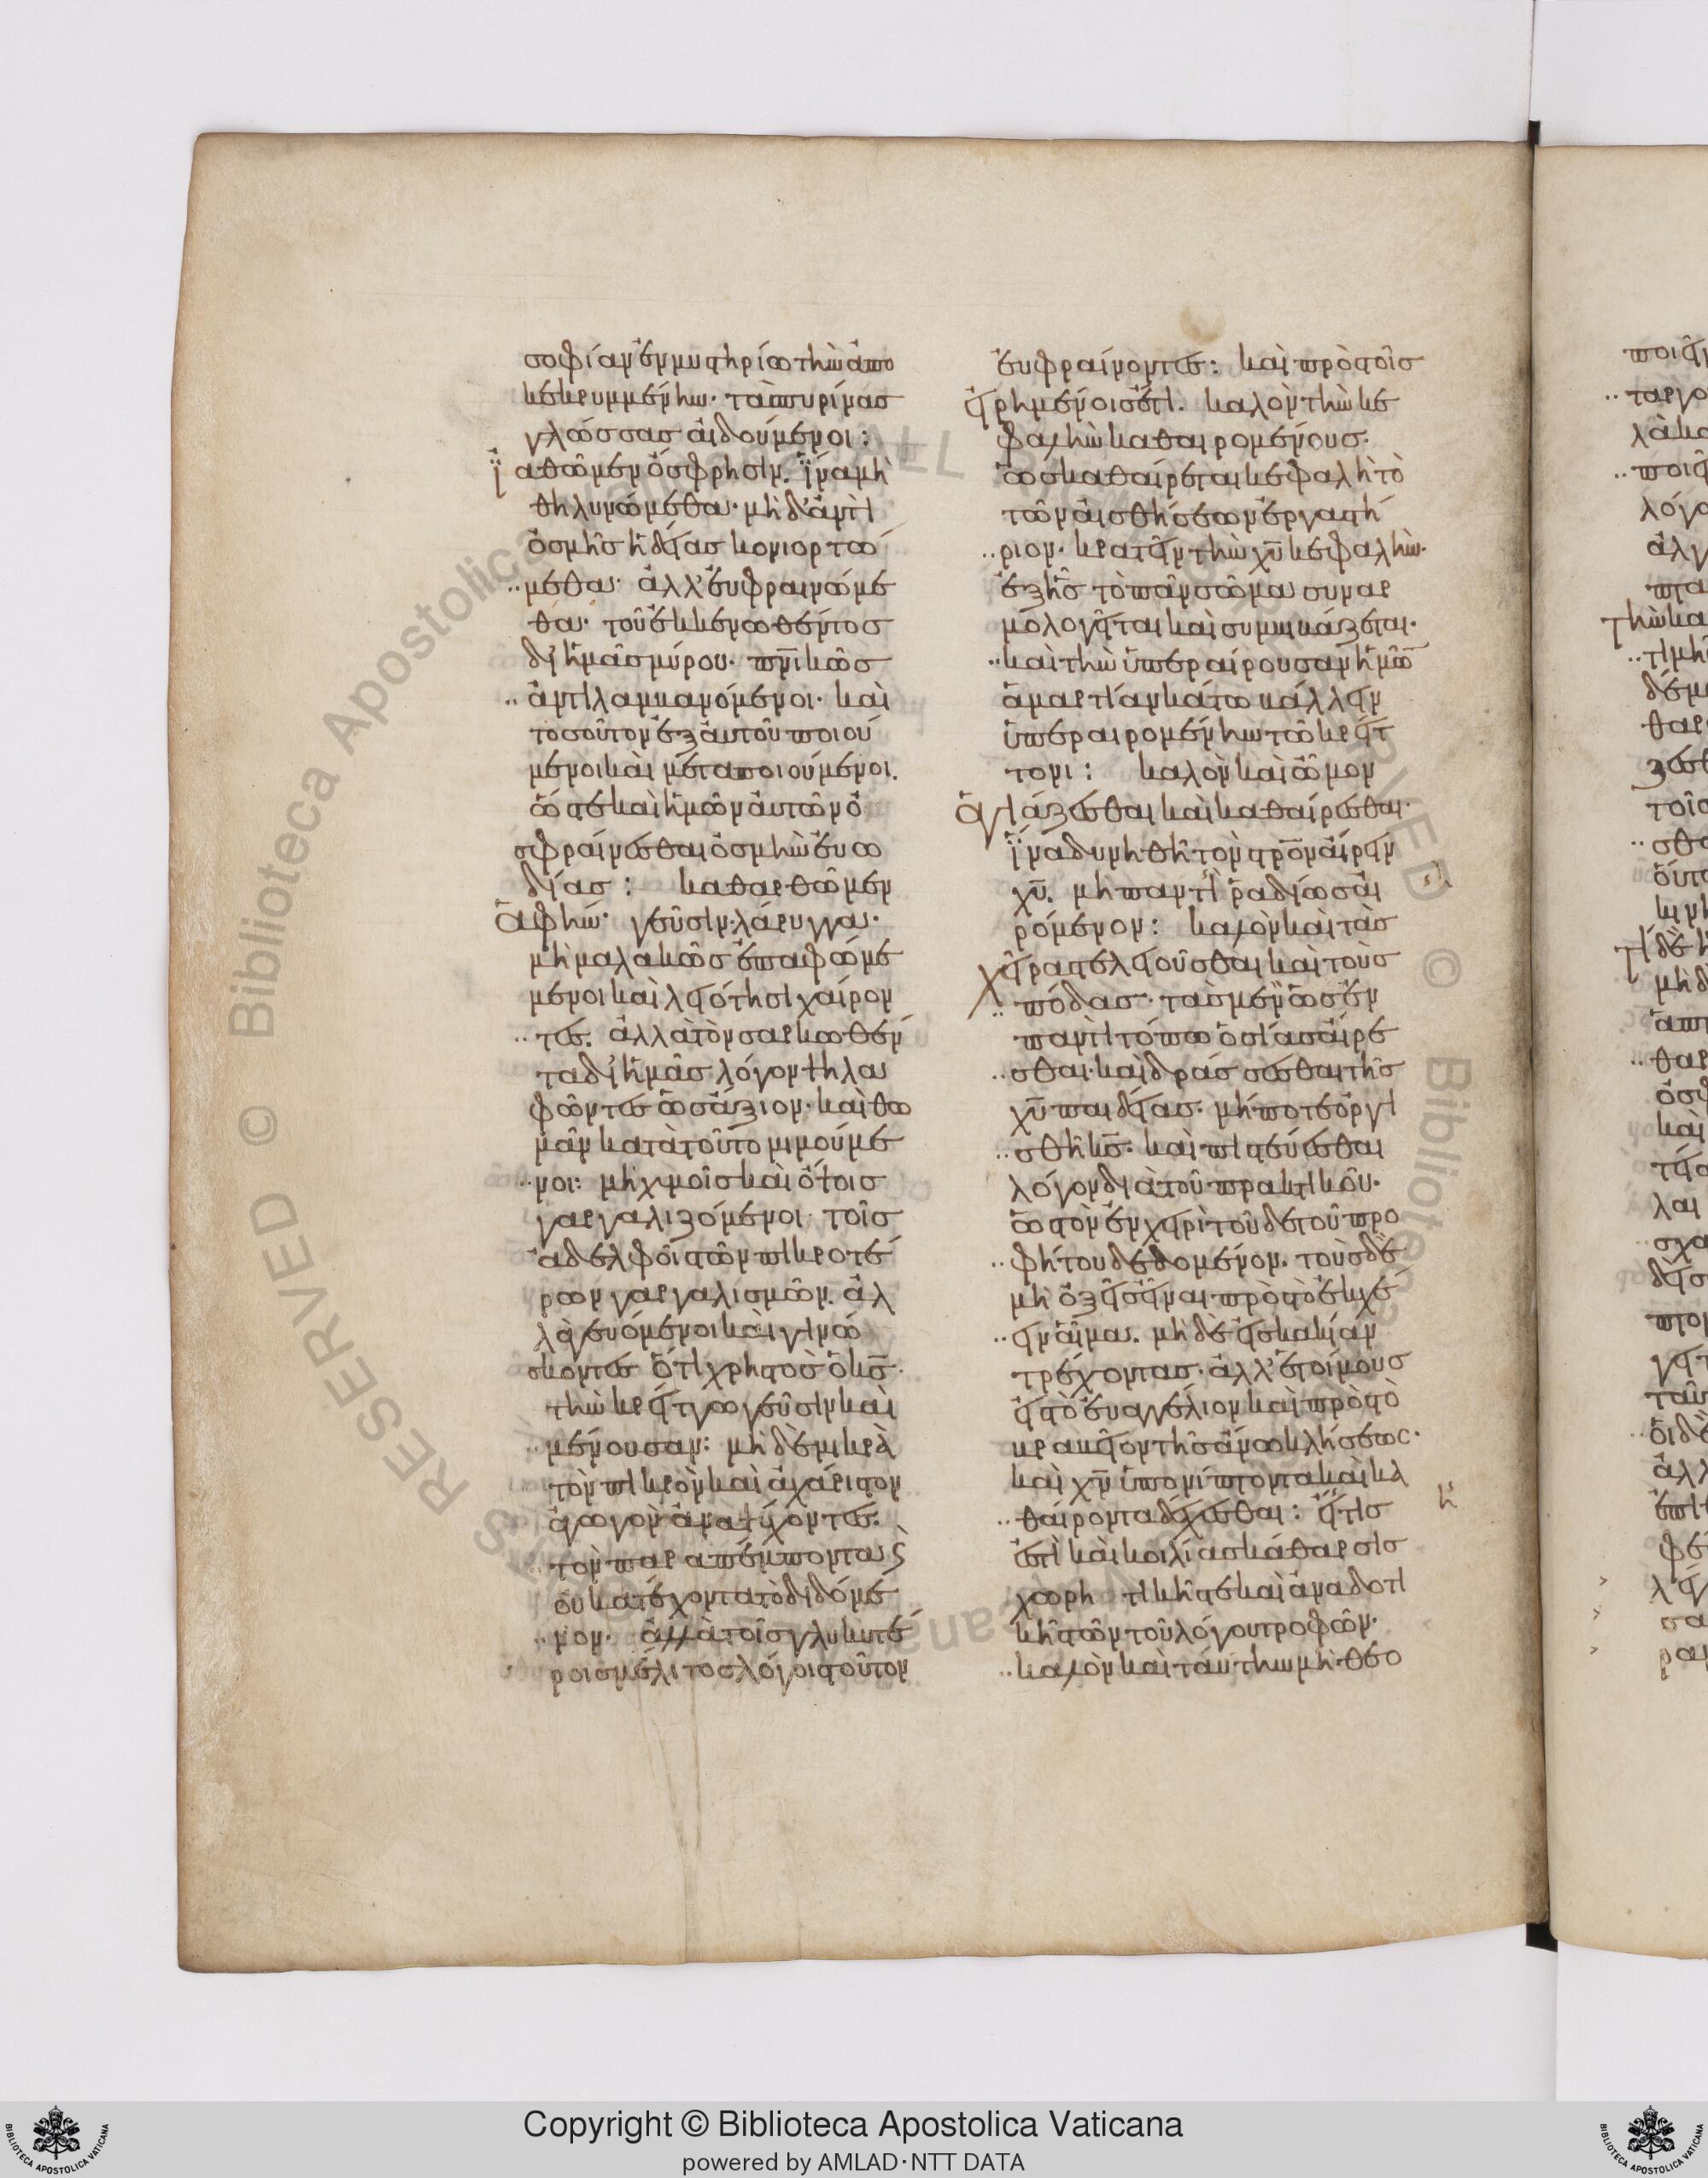 σοφίαν ἐν μυστηρίω τὴν ἀπο
κεκρυμμένην· τὰς πυρίνας
γλώσσας αἰδούμενοι:
ϊαθῶμεν ὄσφρησιν. ἵνα μὴ
θηλυνώμεθα· μὴ δ' ἀντὶ
ὀσμῆς ἡδείας κονιορτώ
μεθα· ἀλλ' εὐφραινώμε
θα· τοῦ ἐκκενωθέντος
δι' ἡμᾶς μύρου· πνικῶς
ἀντιλαμβανόμενοι· καὶ
τοσοῦτον ἐξ αὐτοῦ ποιού
μενοι καὶ μεταποιούμενοι.
ὥστε καὶ ἡμῶν αὐτῶν ὀ
σφραίνεσθαι ὀσμὴν εὐω
δίας: καθαρθῶμεν
ἁφήν· γεῦσιν· λάρυγγα·
μὴ μαλακῶς ἐπαφώμε
μενοι καὶ λειότησι χαίρον
τες. ἀλλὰ τὸν σαρκωθέν
τα δι' ἡμᾶς λόγον ψηλα
φῶντες ὡς ἄξιον· καὶ θω
μᾶν κατὰ τοῦτο μιμούμε
νοι: μὴ χυμοῖς καὶ ὄψοις
γαργαλιζόμενοι τοῖς
ἀδελφοῖς τῶν πικροτέ
ρων γαργαλισμῶν. ἀλ
λὰ γευόμενοι καὶ γινώ
σκοντες ὅτι χρηστὸς ὁ κς·
τὴν κρείττω γεῦσιν καὶ
μένουσαν: μὴ δὲ μικρὰ
τὸν πικρὸν καὶ ἀχάριστον
ἀγωγὸν ἀναψύχοντες.
τὸν παραπέμποντα ϛ
οὐ κατέχοντα τὸ διδόμε
νον· ἀλλὰ τοῖς γλυκυτέ
ροις μέλιτος λόγοις τοῦτον
εὐφραίνοντες: καὶ πρὸς τοῖς
εἰρημένοις ἔτι. καλὸν τὴν κε
φαλὴν καθαιρομένους·
ὡς καθαίρεται κεφαλὴ τὸ
τῶν αἰσθήσεων ἐργαστή
ριον· κρατεῖν τὴν χυ κεφαλὴν·
ἐξ ἧς τὸ πᾶν σῶμα συναρ
μολογεῖται καὶ συμβιβάζεται·
καὶ τὴν ὑπεραίρουσαν ἡμῶν
ἁμαρτίαν κάτω βάλλειν
ὑπεραιρομένην τῶ κρείτ
τονι: καλὸν καὶ ὦμον
ἁγιάζεσθαι καὶ καθαίρεσθαι·
ἵνα δυνηθῆ τὸν στρον αἴρειν
χυ. μὴ παντὶ ῥαδίως αἰ
ρόμενον: καλὸν καὶ τὰς
χεῖρας τελειοῦσθαι καὶ τοὺς
πόδας· τὰς μὲν ὡς ἐν
παντὶ τόπω ὁσίας αἴρε
σθαι· καὶ δράσσεσθαι τῆς
χυ παιδείας· μήποτε ὀργι
σθῆ κς· καὶ πιστεύεσθαι
λόγον διὰ τοῦ πρακτικοῦ·
ὡς τὸν ἐν χειρὶ τοῦδέ του προ
φήτου δεδομένον. τοὺς δὲ
μὴ ὀξεῖς εἶναι πρὸς τὸ ἐκχέ
ειν αἷμα. μὴ δὲ εἰς κακίαν
τρέχοντας. ἀλλ' ἑτοίμους
εἰς τὸ εὐαγγέλιον καὶ πρὸς τὸ
βραβεῖον τῆς ἄνω κλήσεως·
καὶ χν ὑπονίπτοντα καὶ κα
θαίροντα δέχεσθαι: εἴ τις
ἐστὶ καὶ κοιλίας κάθαρσις
χωρητικῆς τε καὶ ἀναδοτι
κῆς τῶν τοῦ λόγου τροφῶν·
καλὸν καὶ ταύτην μὴ θεο
Copyright © Biblioteca Apostolica Vaticana
powered by AMLAD·NTT DATA